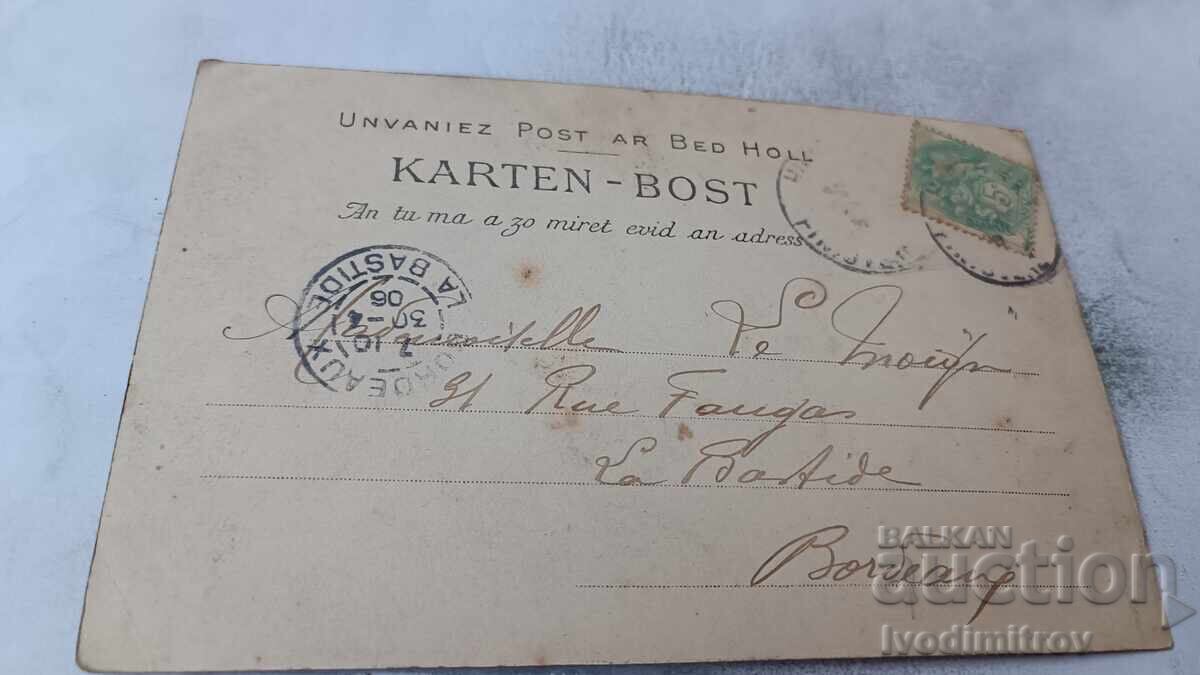 UNVANIEZ POST AR BED HOLL
KARTEN-BOST
An tu ma a zo miret evid an adress
5
BORDEAUX LA BASTIDE
7 10
30 -4
06
Mademoiselle Le
31 Rue Faugas
La Bastide
Bordeaux
BALKAN
auction
Ivodimitrov